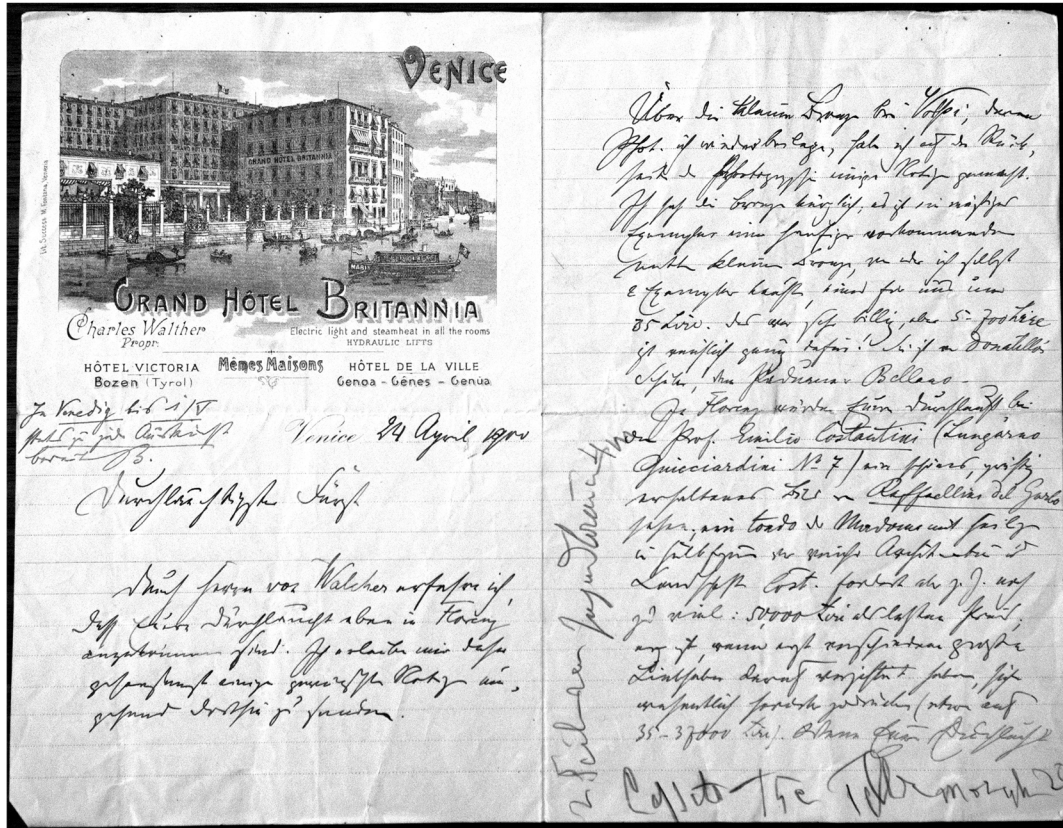 VENICE
GRAND HÔTEL BRITANNIA
GRAND HÔTEL BRITANNIA
Charles Walther
Propr.
Electric light and steamheat in all the rooms
HYDRAULIC LIFTS
HÔTEL VICTORIA
Bozen (Tyrol)
Mêmes Maisons
HÔTEL DE LA VILLE
Genoa - Gênes - Genua
In Venedig bis 1/V
stets zu jeder Auskunft
bereit B.
Venice 24 April 1900
Durchlauchtigster Fürst
Durch Herrn von Walcher erfahre ich,
dass Eure Durchlaucht eben in Florenz
angekommen sind. Ich erlaube mir daher
einige Notizen
dorthin zu senden.
Über die kleine Bronze bei Volpi, deren
Phot. ich wieder beilege, habe ich auf der Rück-
seite der Photographie einige Notizen gemacht.
Ich sah die Bronze kürzlich, es ist ein mäßiges
Exemplar einer häufiger vorkommenden
kleinen Bronze, von der ich selbst
2 Exemplare kaufte, eines für uns um
35 Lire. Das war sehr billig, aber 5-700 Lire
ist reichlich genug dafür! Sie ist von Donatellos
Schüler, dem Paduaner Bellano.
In Florenz würden Eure Durchlaucht bei
dem Prof. Emilio Costantini (Lungarno
Guicciardini No 7) ein schönes, gut
erhaltenes Bild von Raffaellino del Garbo
sehen, ein Tondo der Madonna mit Heilg.
in Halbfigur vor Architektur u.
Landschaft. Cost. fordert aber z. Z. noch
zu viel: 50,000 Lire als letzten Preis,
er ist, wenn erst verschiedene große
Liebhaber darauf verzichtet haben, sich
wesentlich herunter zu drücken (etwa auf
35-37000 Lire). Wenn Eure Durchlaucht